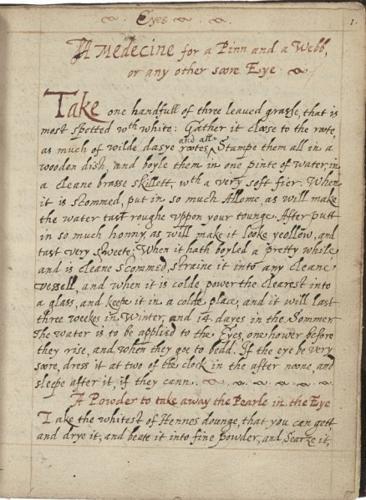 Eyes
1.
A Medecine for a Pinn and a Webb,
or any other sore Eye
Take one handfull of three leaved grasse, that is
most spotted wth white: Gather it close to the roote,
as much of wilde dasye rootes, and all, Stampe them all in a
wooden dish, and boyle them in one pinte of water, in
a cleane brasse skillett, wth a very soft fier. When
it is scommed, put in so much Allome, as will make
the water tast roughe vppon your tounge. After putt
in so much honny, as will make it looke yeollow, and
tast very sweete. When it hath boyled a pretty while
and is cleane scommed, straine it into any cleane
vessell, and when it is colde power the clearest into
a glass, and keepe it in a colde place, and it will last
three weekes in Winter, and 14 dayes in the Sommer
The water is to be applied to the Eyes, one hower before
they rise, and when they goe to bedd. If the eye be very
sore, dress it at two of the clock in the after noone, and
sleepe after it, if they cann.
A Powder to take away the Pearle in the Eye
Take the whitest of Hennes dounge, that you can gett
and drye it, and beate it into fine powder, and searze it,